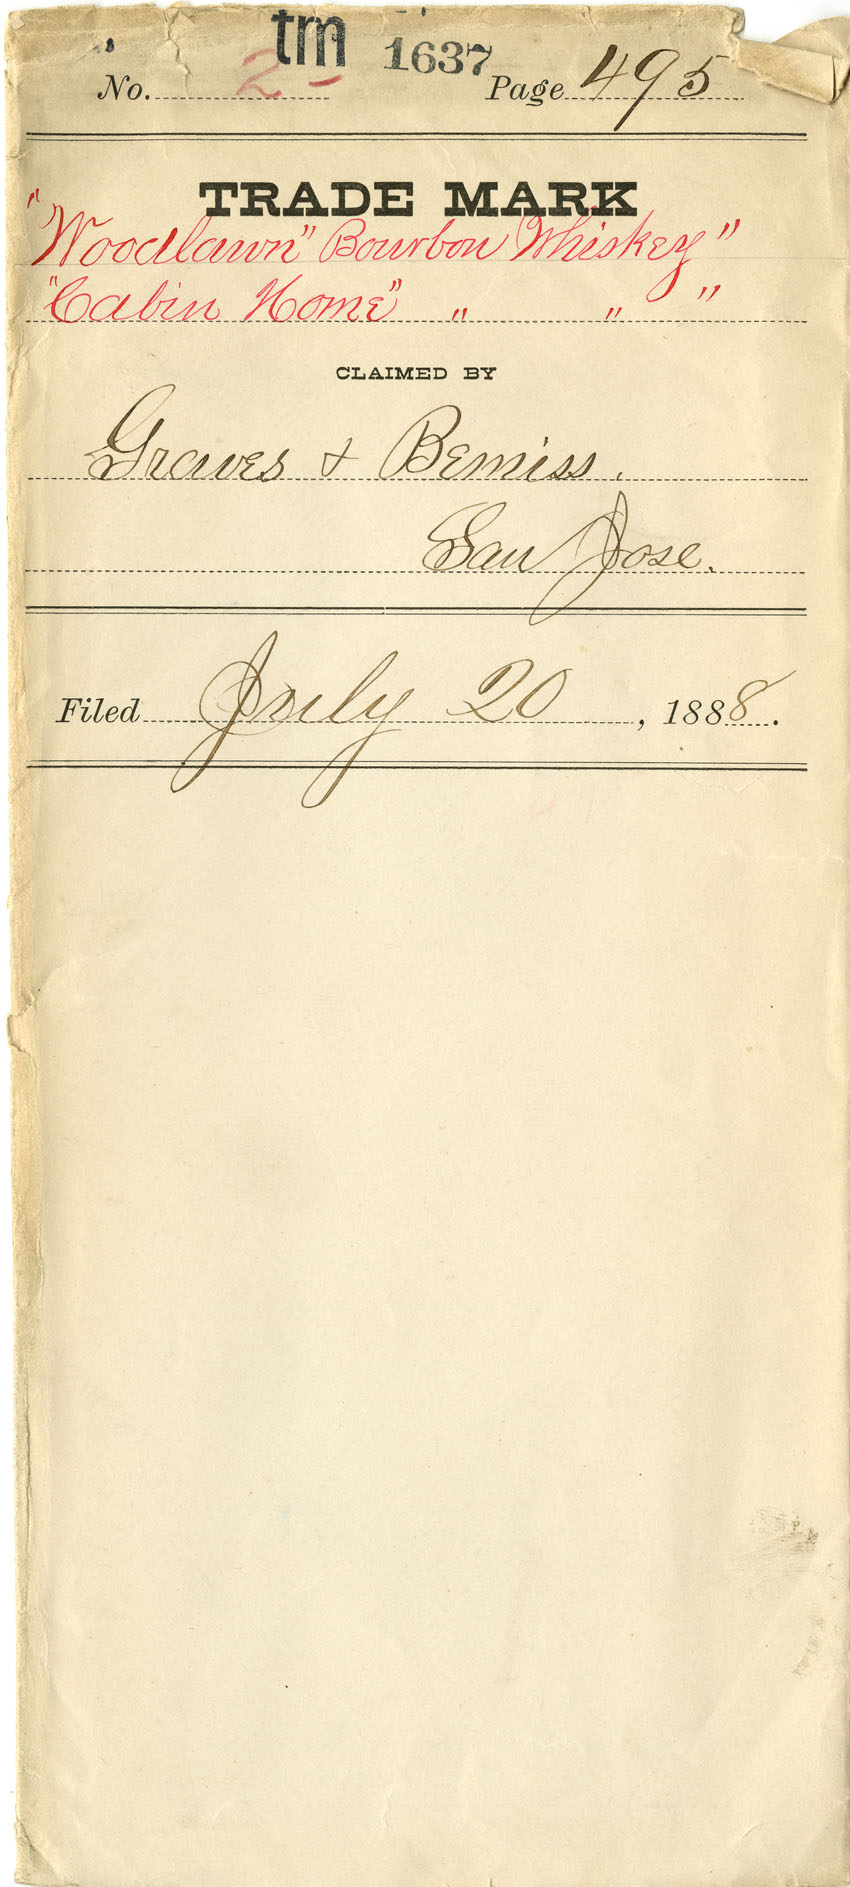 tm 1637
No. 2 - Page 495
TRADE MARK
"Woodlawn" Bourbon Whiskey"
"Cabin Home" " " "
CLAIMED BY
Graves & Bemiss.
San Jose.
Filed July 20, 1888.